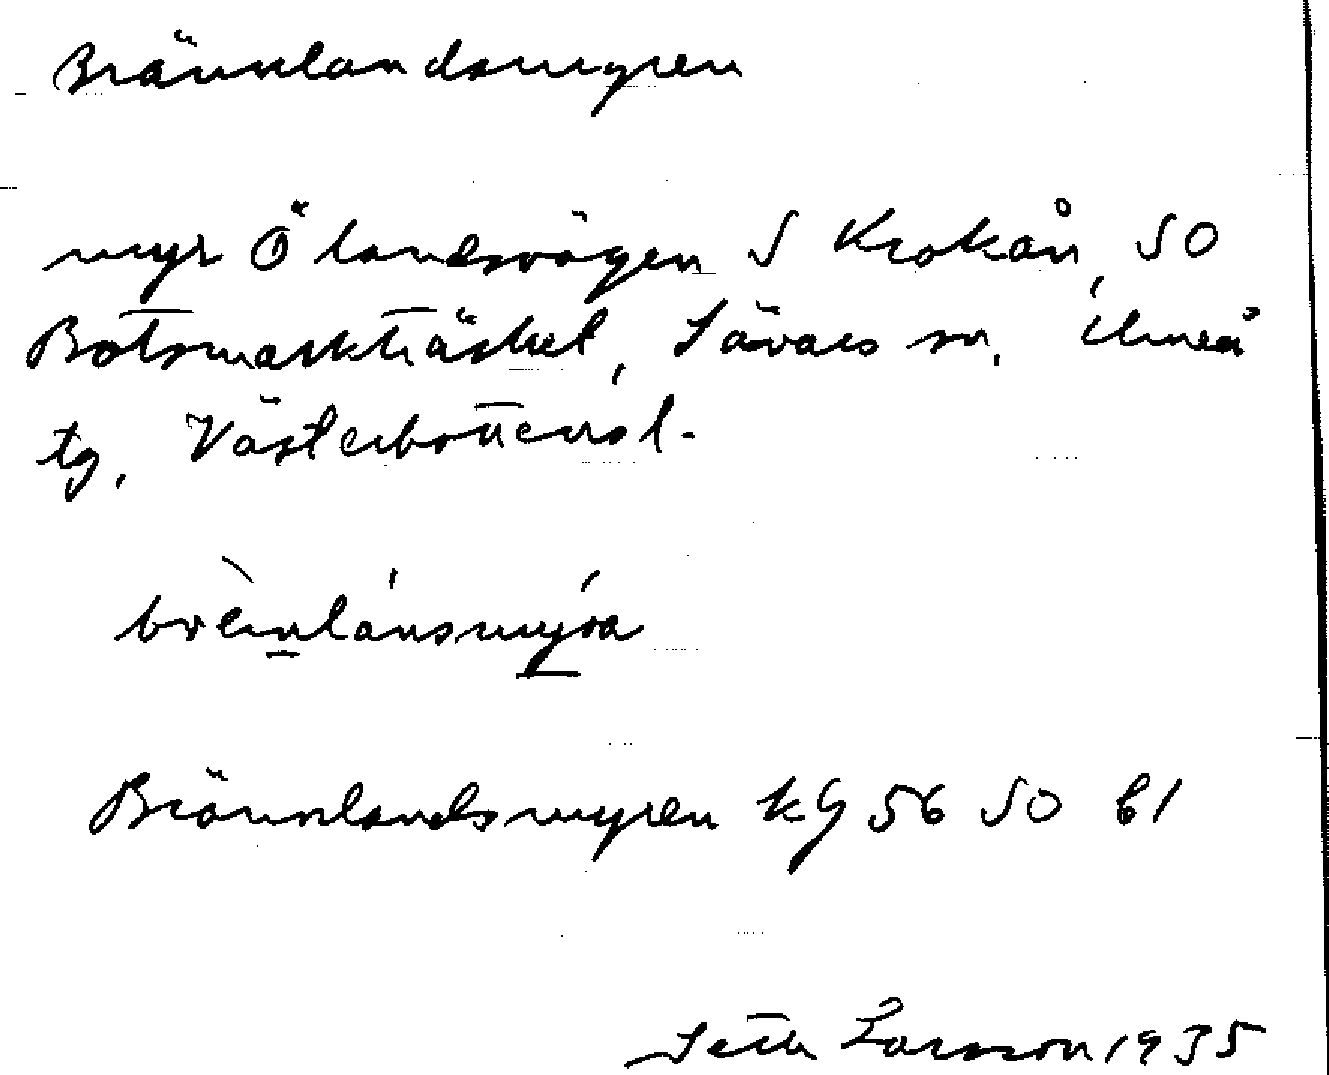 Brännlandsmyren
myr Ö landsvägen S Krokån, SO
Botsmarkträsket, Sävars sn, Umeå
tg, Västerbottens l.
brènlánsmýra
Brännlandsmyren kg 56 SO b1
Seth Larsson 1935